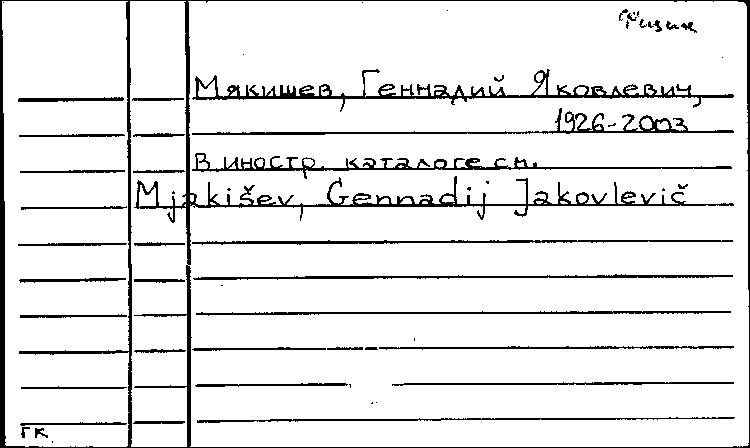 Физик
Мякишев, Геннадий Яковлевич,
1926-2003
В иностр. каталоге см.
Mjakišev, Gennadij Jakovlevič
ГК